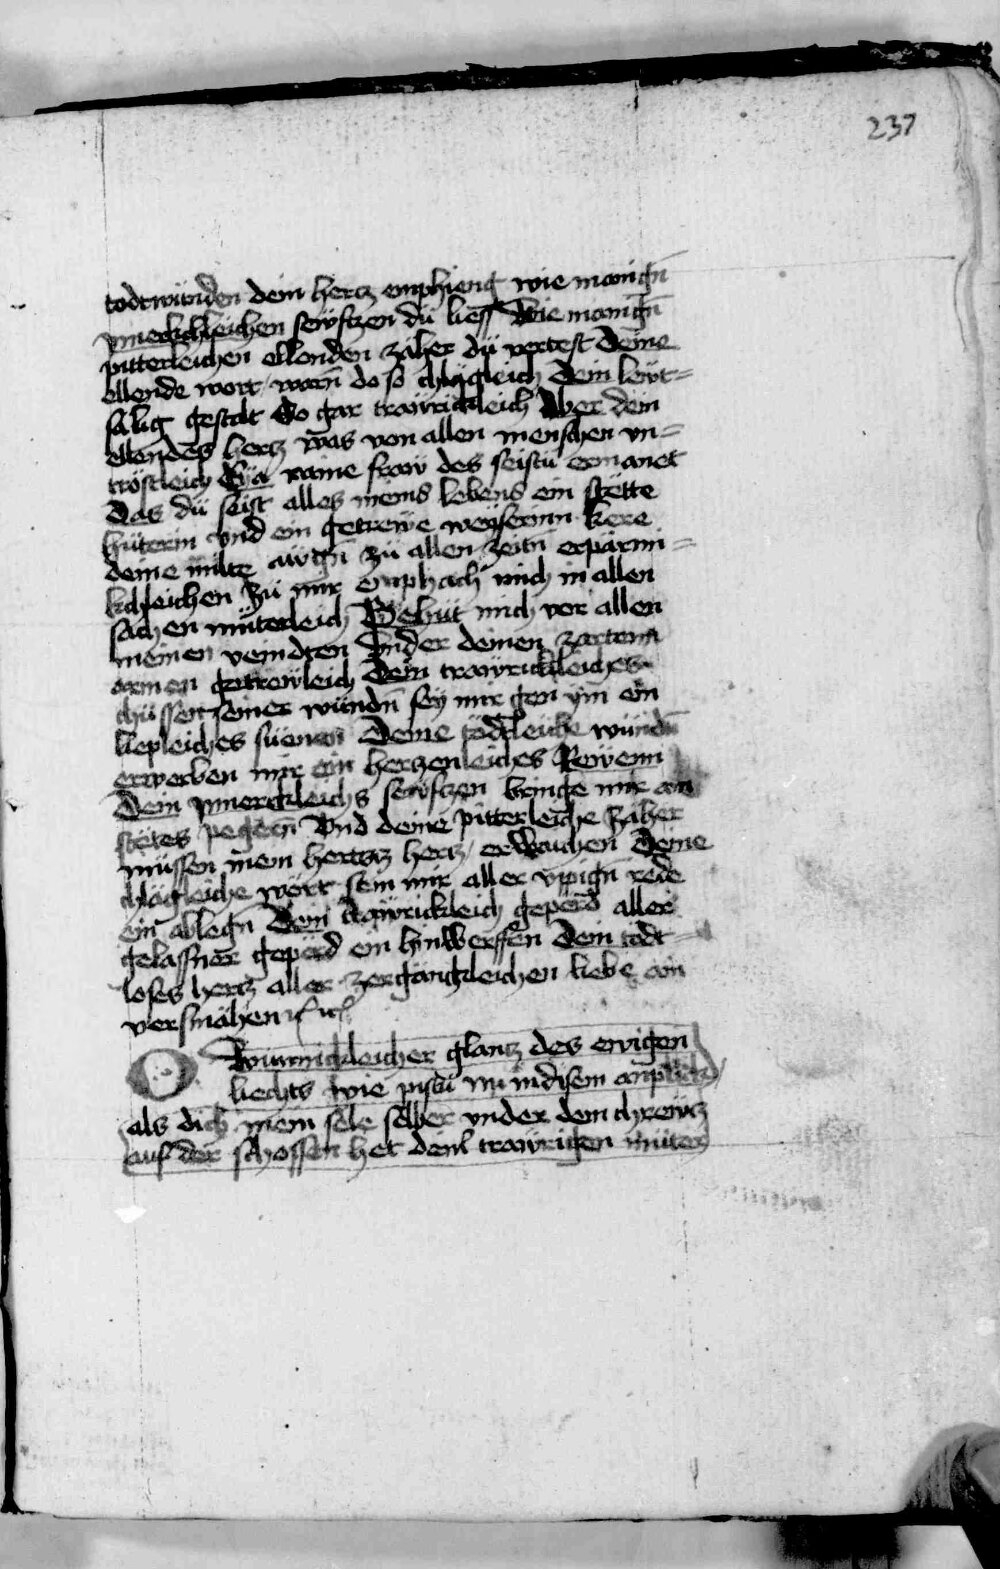 237
todtwünden dein hertz emphieng wie manign̄
ynnerkchleichen sewfftzen du liess Wie manign̄
pitterleichen ellenden zäher dü rertest Deine
ellende wort warn̄ do so chlägleich Dein lewt=
sälig gestalt So gar trawrickleich Aber dem
ellendes hertz was von allen menschen vn=
tröstleich Eya raine fraw des seistu ermanet
Das dü seist alles meins lebens ein stette
hüterin vnd ein getrewe weyserinn kere
deine milte awgn̄ zü allen zeitn̄ erpärm=
kchleichen zü mir emphach mich in allen
sachen müterleich Behüt mich vor allen
meinen veindten vnder deinen zarten
armen getrewleich Dein trawrickleiches
chüssen seiner wündn̄ sey mir gen ym ein
liepleiches süenen Deine tödtleiche wündn̄
erwerben mir ein hertzenleiches Rewenn
Dein ynnerckleichs sewfftzen bringe mir ain
stëtes pegern̄ Vnd deine pitterleiche zäher
müssen mein herttz hertz erwaichen Deine
chlägleiche wort sein mir aller vppign̄ rede
ein ablegn̄ Dein trawrickleich geperd aller
gelassner geperd ein hinwerffen Dem trost=
loses hertz aller zergänckleichen liebe ain
versmähen
O Wunnickleicher glantz des ewigen
liechts wie pistu nu in disem anplick
als dich mein sele selber vnder dem chrewtz
auf der schossen het deinr trawrigen müter